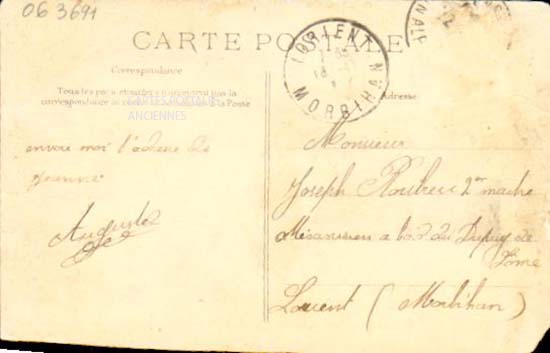 063691
CARTE POSTALE
LORIENT
MORBIHAN
Correspondance
Tous les pays étrangers n'acceptent pas la
correspondance au recto à la Poste
Adresse
CARTES POSTALES
ANCIENNES
envoie moi l'adresse de
Jeanne
Auguste
Monsieur
Joseph 2er
Mécanicien a bord du Dupuy de
Lôme
Lorient (Morbihan)